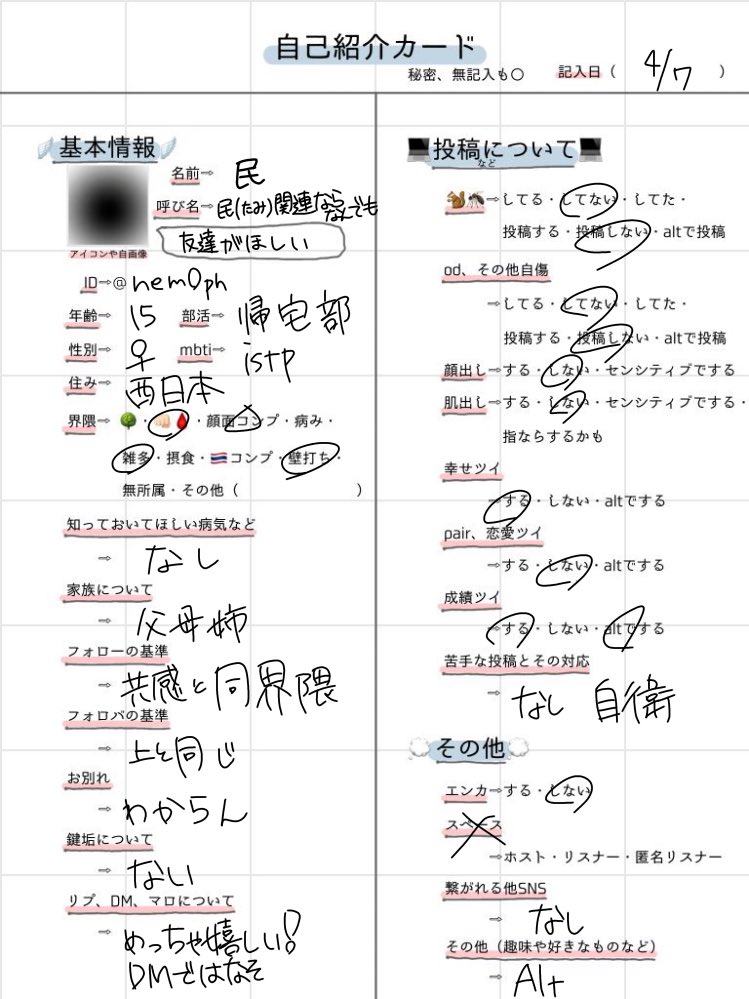 自己紹介カード
秘密、無記入も〇
記入日（ 4/7 ）
基本情報
名前⇨ 民
呼び名⇨ 民(たみ)関連ならなんでも
友達がほしい
アイコンや自画像
ID⇨@ nem0ph
年齢⇨ 15 部活⇨ 帰宅部
性別⇨ ♀ mbti⇨ istp
住み⇨ 西日本
界隈⇨🌳・👊🏻🩸・顔面コンプ・病み・
雑多・摂食・🇹🇭コンプ・壁打ち・
無所属・その他（ ）
知っておいてほしい病気など
⇨ なし
家族について
⇨ 父母姉
フォローの基準
⇨ 共感と同界隈
フォロバの基準
⇨ 上と同じ
お別れ
⇨ わからん
鍵垢について
⇨ ない
リプ、DM、マロについて
⇨ めっちゃ嬉しい!
DMではなそ
投稿について
など
🐿🦟⇨してる・してない・してた・
投稿する・投稿しない・altで投稿
od、その他自傷
⇨してる・してない・してた・
投稿する・投稿しない・altで投稿
顔出し⇨する・しない・センシティブでする
肌出し⇨する・しない・センシティブでする・
指ならするかも
幸せツイ
⇨する・しない・altでする
pair、恋愛ツイ
⇨する・しない・altでする
成績ツイ
⇨する・しない・altでする
苦手な投稿とその対応
⇨ なし 自衛
その他
エンカ⇨する・しない
スペース
⇨ホスト・リスナー・匿名リスナー
繋がれる他SNS
⇨ なし
その他（趣味や好きなものなど）
⇨ Alt